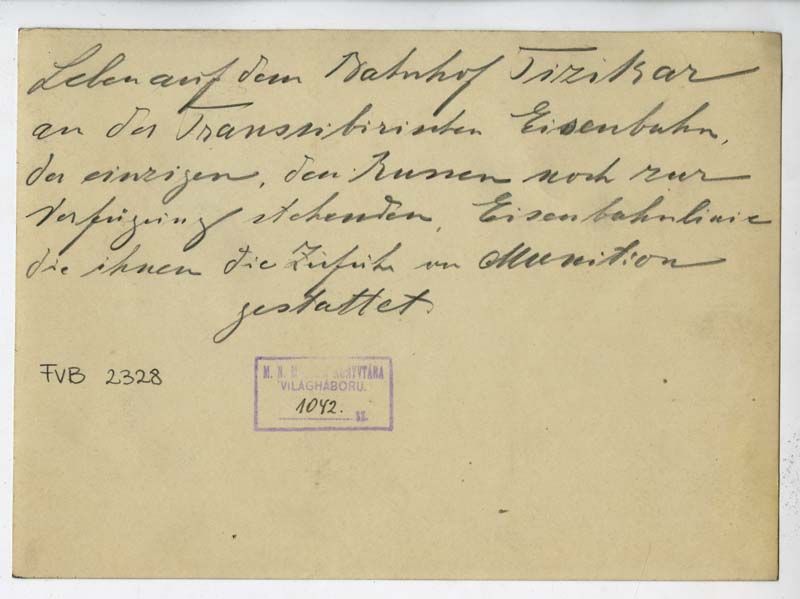 Leben auf dem Bahnhof Tizikar
an der Transsibirischen Eisenbahn,
der einzigen, den Russen noch zur
Verfügung stehenden, Eisenbahnlinie
die ihnen die Zufuhr von Munition
gestattet.
FVB 2328
M. N. M KÖNYVTÁRA
VILÁGHÁBORU.
1042. SZ.